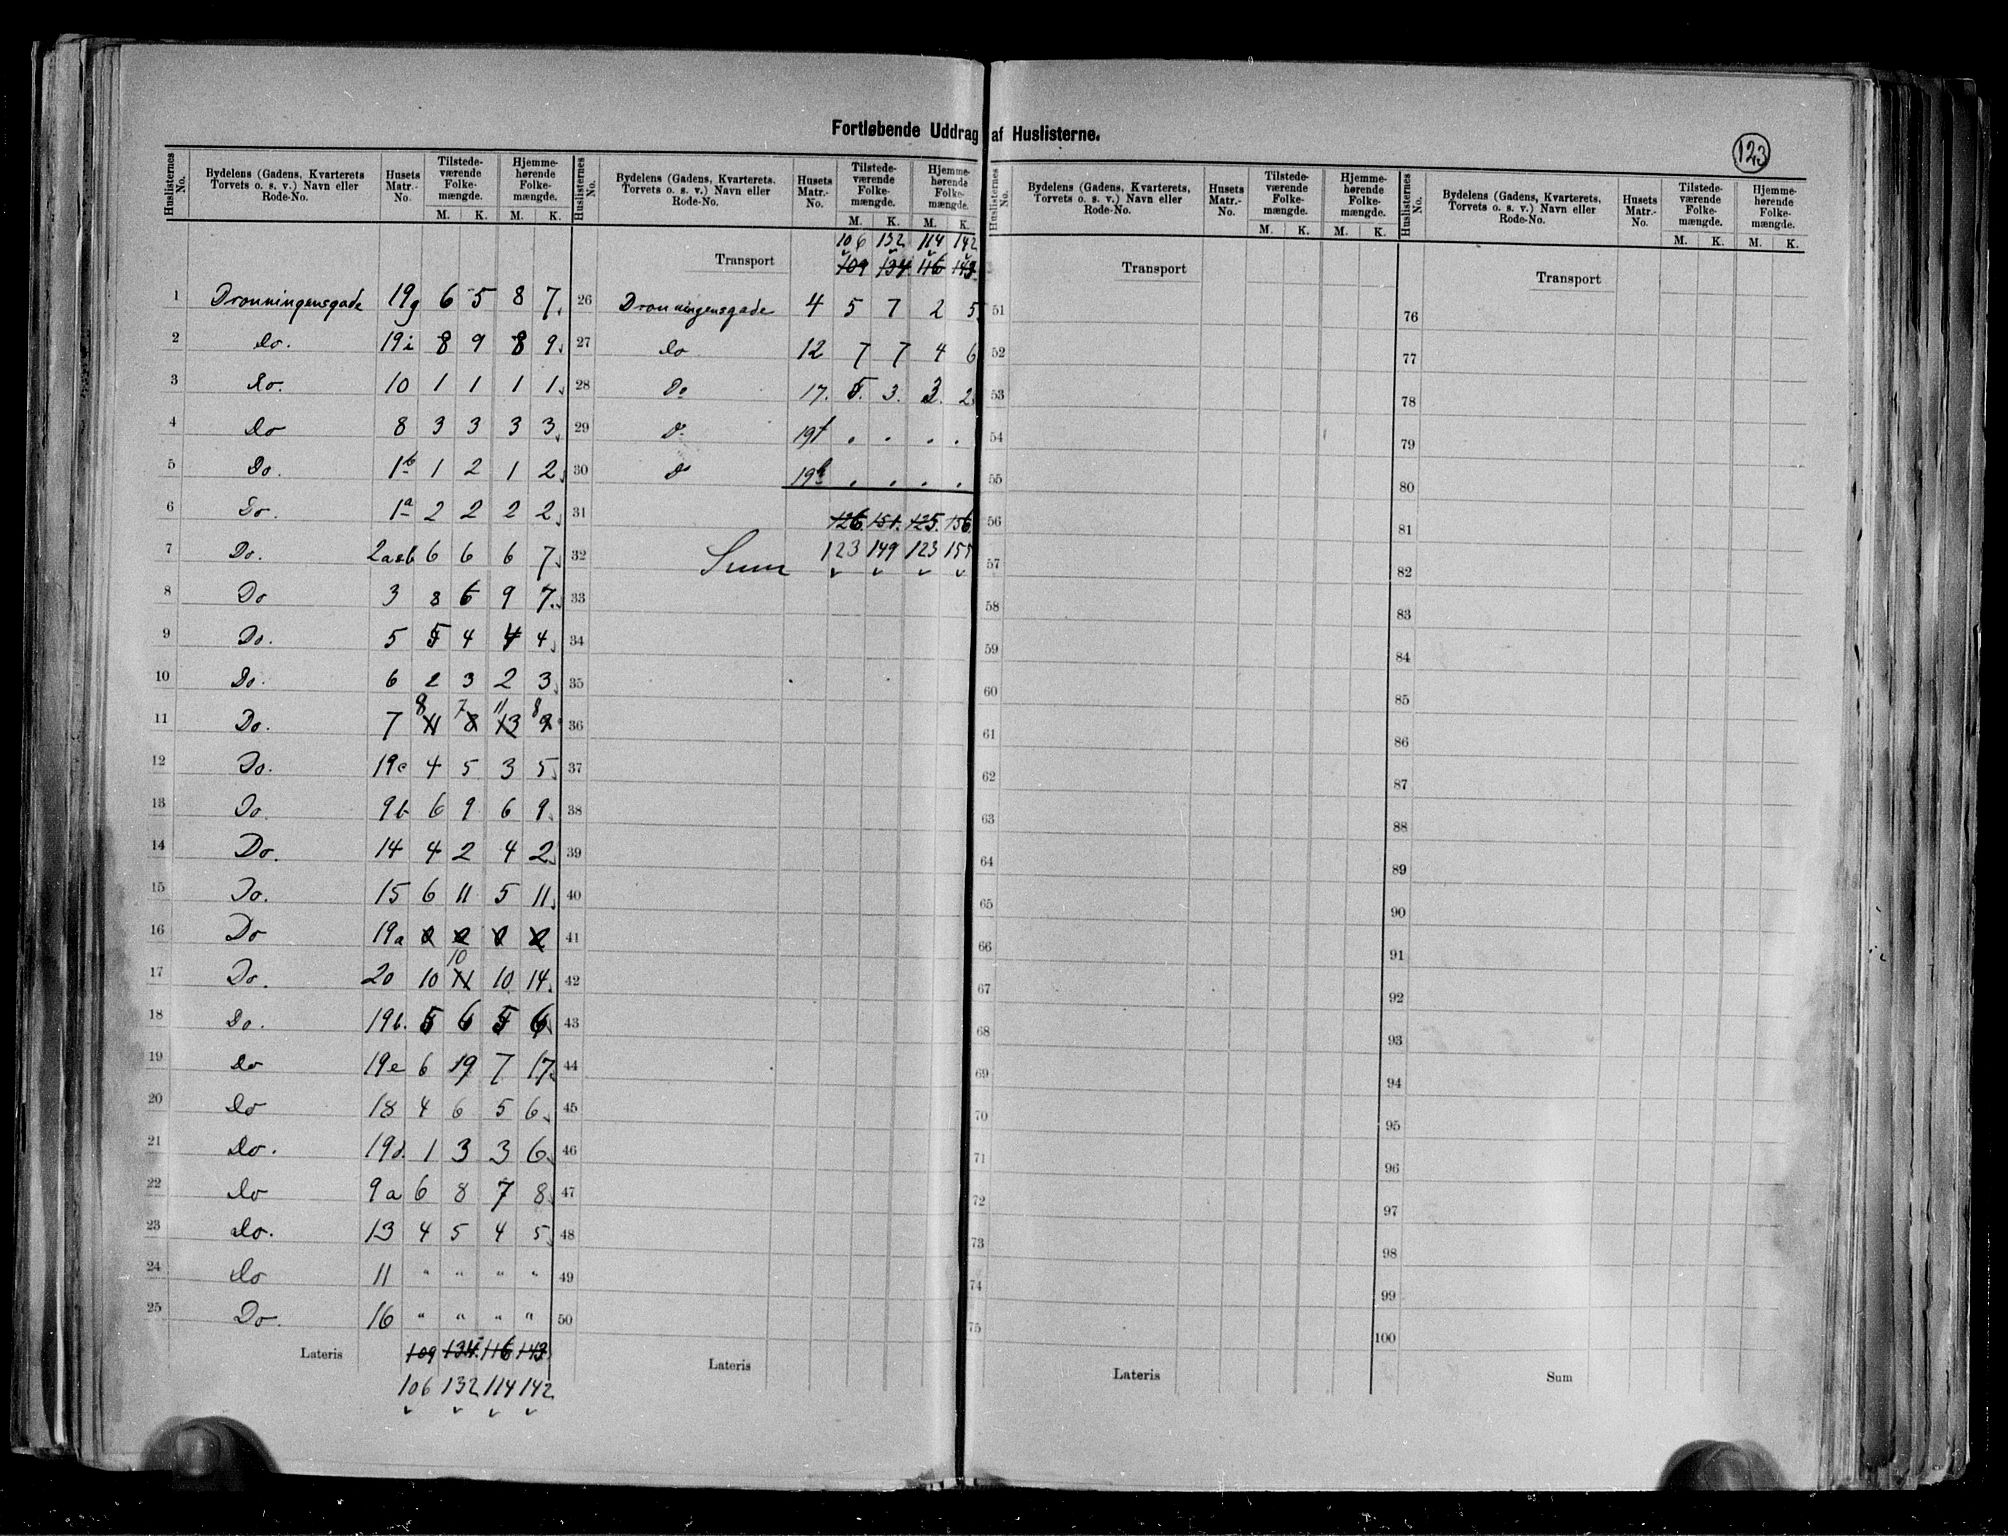 Fortløbende Uddrag af Huslisterne.
123
Huslisternes No. Bydelens (Gadens, Kvarterets Torvets o. s. v.) Navn eller Rode-No. Husets Matr.-No. Tilstedeværende Folkemængde. M. K. Hjemmehørende Folkemængde. M. K.
1 Dronningensgade 19g 6 5 8 7
2 do. 19i 8 9 8 9
3 do. 10 1 1 1 1
4 do 8 3 3 3 3
5 Do. 1b 1 2 1 2
6 Do. 1a 2 2 2 2
7 Do. 2a&b 6 6 6 7
8 Do 3 8 6 9 7
9 Do. 5 5 4 4 4
10 Do. 6 2 3 2 3
8 7 11 8
11 Do. 7 11 8 13 9
12 Do. 19c 4 5 3 5
13 Do. 9b 6 9 6 9
14 Do. 14 4 2 4 2
15 Do. 15 6 11 5 11
16 Do 19a
10
17 Do. 20 10 11 10 14
18 Do. 19b. 5 6 5 6
19 do 19e 6 19 7 17
20 do 18 4 6 5 6
21 do. 19d. 1 3 3 6
22 do 9a 6 8 7 8
23 do. 13 4 5 4 5
24 do 11 " " " "
25 Do. 16 " " " "
Lateris 109 134 116 143
106 132 114 142
Huslisternes No. Bydelens (Gadens, Kvarterets, Torvets o. s. v.) Navn eller Rode-No. Husets Matr.-No. Tilstedeværende Folkemængde. M. K. Hjemmehørende Folkemængde. M. K.
106 132 114 142
Transport 109 134 116 143
26 Dronningensgade 4 5 7 2 5
27 do 12 7 7 4 6
28 Do 17. 5. 3. 3. 2
29 Do 19f . . . .
30 Do 19h . . . .
31 126 151 125 156
32 Sum 123 149 123 155
33
34
35
36
37
38
39
40
41
42
43
44
45
46
47
48
49
50
Lateris
Huslisternes No. Bydelens (Gadens, Kvarterets, Torvets o. s. v.) Navn eller Rode-No. Husets Matr.-No. Tilstedeværende Folkemængde. M. K. Hjemmehørende Folkemængde. M. K.
Transport
51
52
53
54
55
56
57
58
59
60
61
62
63
64
65
66
67
68
69
70
71
72
73
74
75
Lateris
Huslisternes No. Bydelens (Gadens, Kvarterets, Torvets o. s. v.) Navn eller Rode-No. Husets Matr.-No. Tilstedeværende Folkemængde. M. K. Hjemmehørende Folkemængde. M. K.
Transport
76
77
78
79
80
81
82
83
84
85
86
87
88
89
90
91
92
93
94
95
96
97
98
99
100
Sum